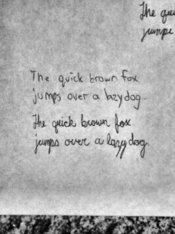 The qui
jumps
The quick brown fox
jumps over a lazy dog
The quick brown fox
jumps over a lazy dog